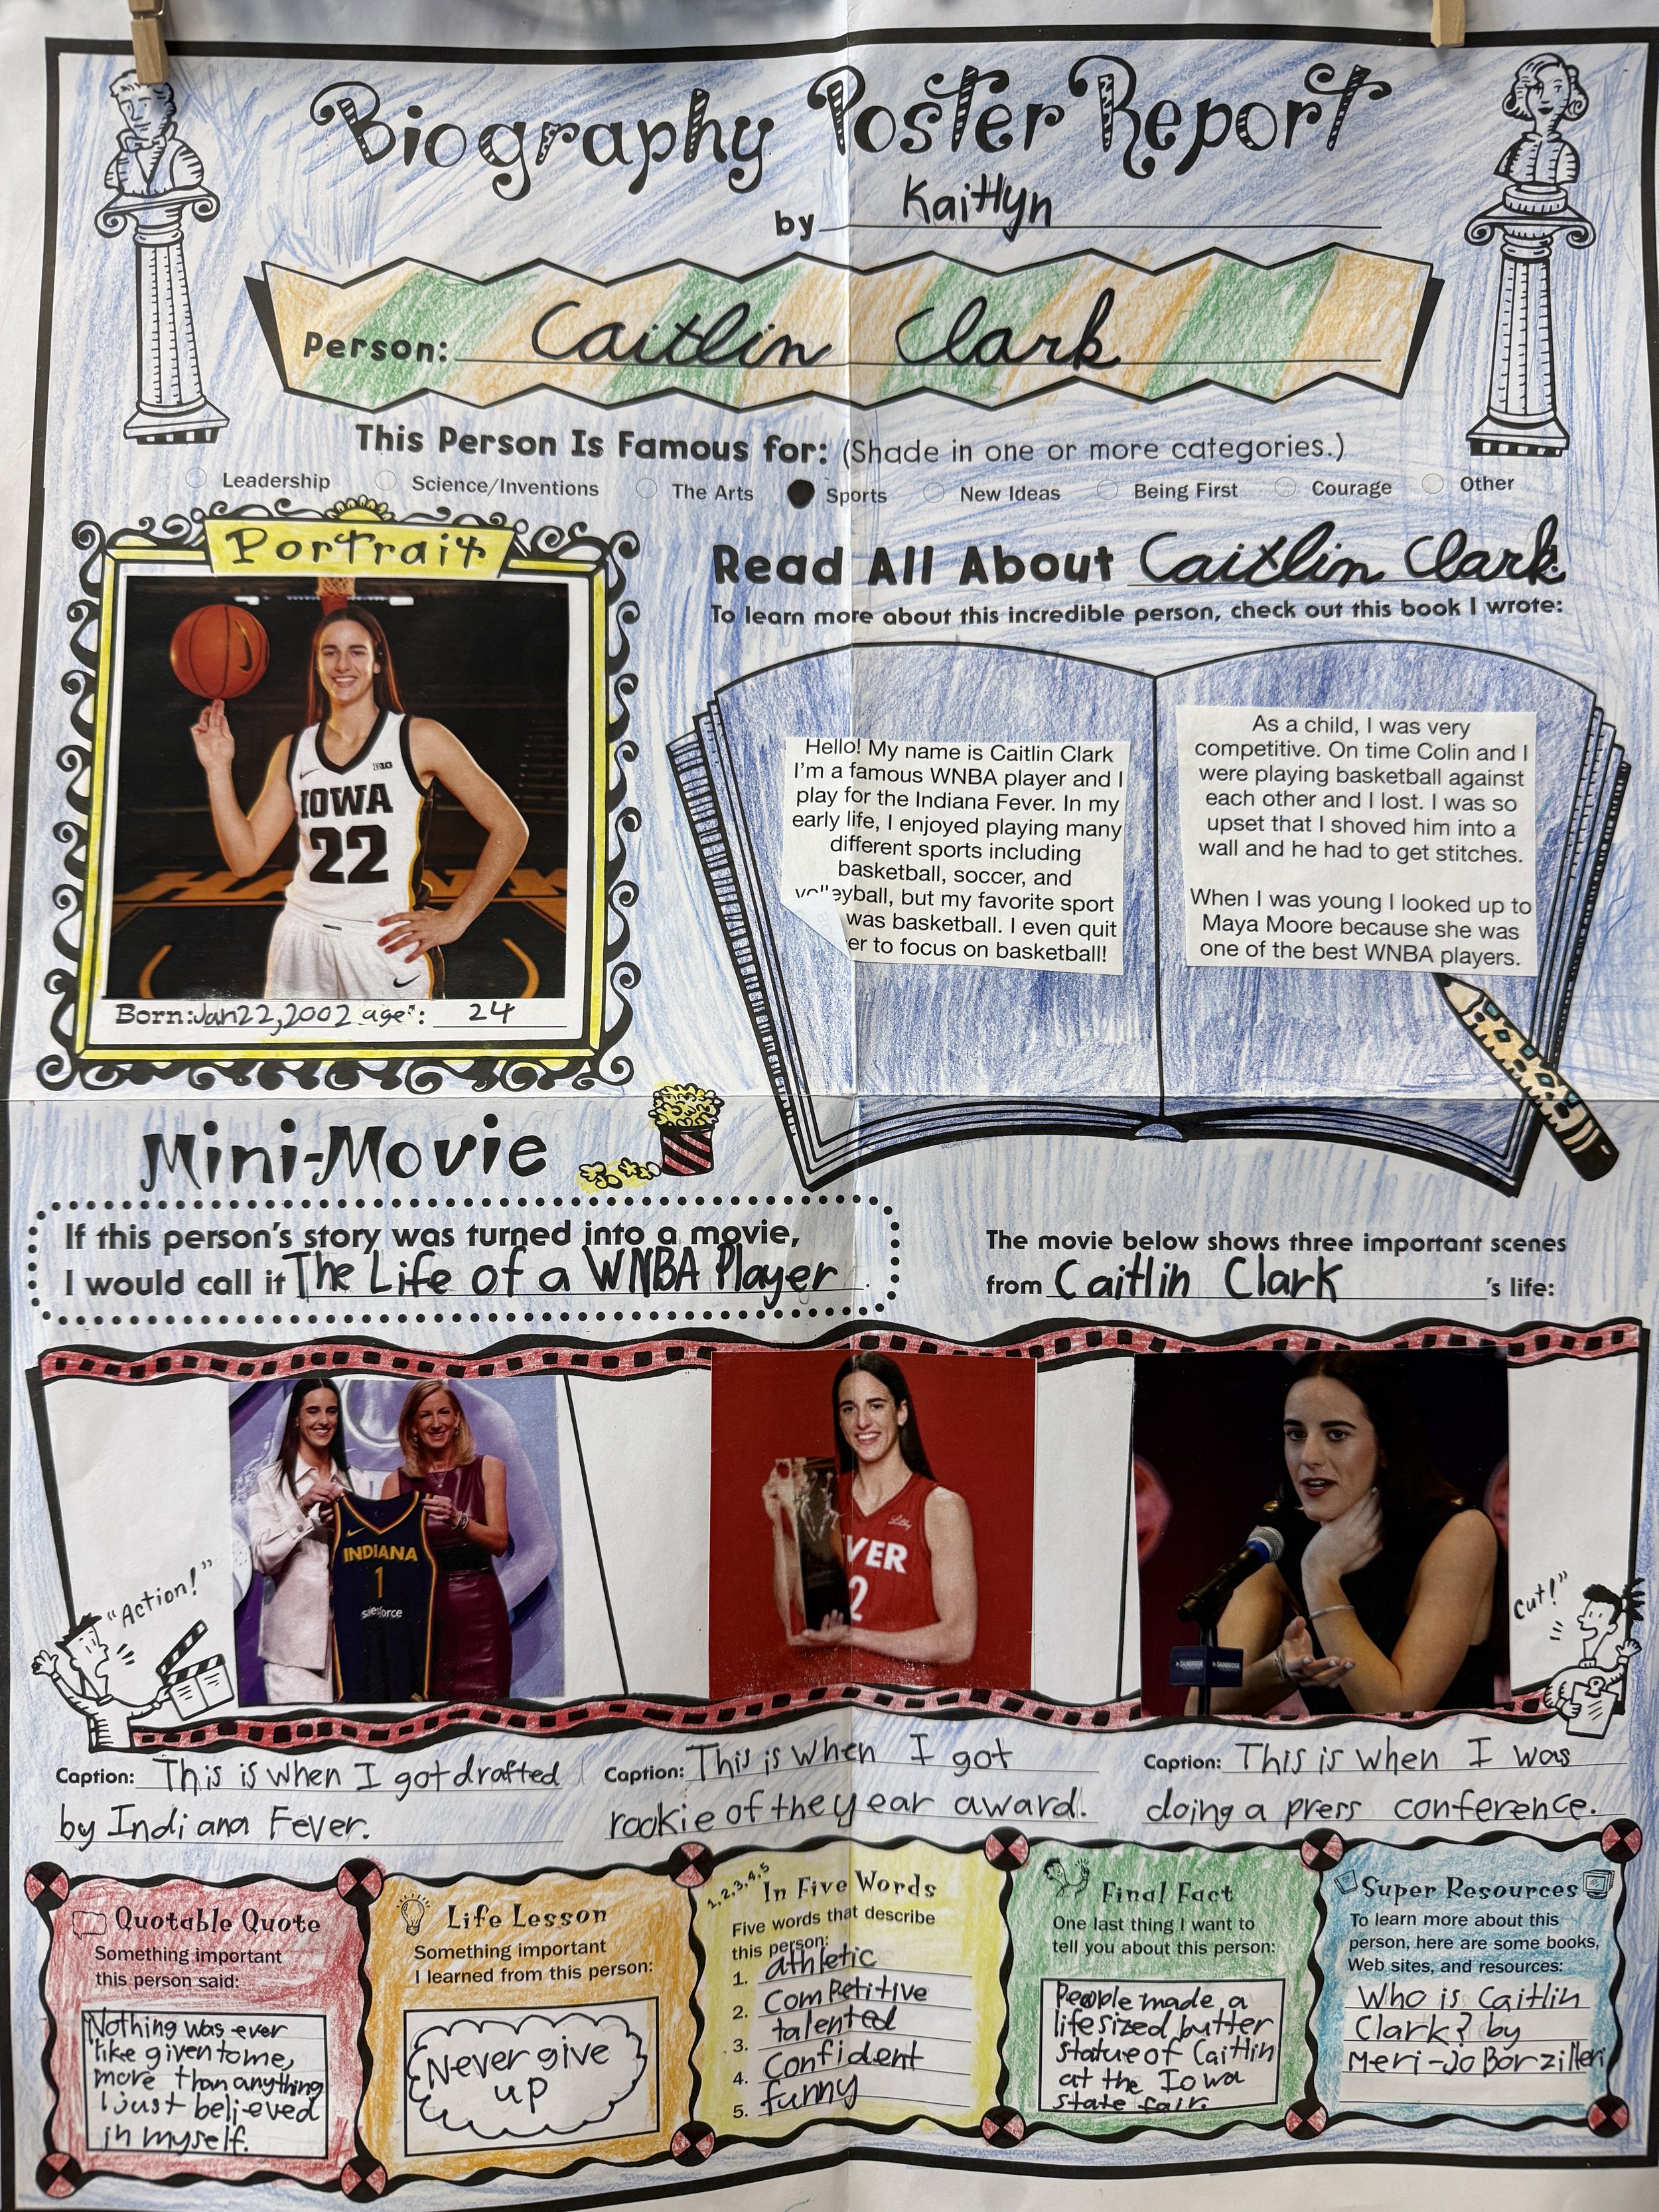 Biography Poster Report
by Kaitlyn
Person: Caitlin Clark
This Person Is Famous for: (Shade in one or more categories.)
Leadership Science/Inventions The Arts Sports New Ideas Being First Courage Other
Portrait
IOWA
22
Born: Jan 22, 2002 age: 24
Read All About Caitlin Clark
To learn more about this incredible person, check out this book I wrote:
Hello! My name is Caitlin Clark
I'm a famous WNBA player and I
play for the Indiana Fever. In my
early life, I enjoyed playing many
different sports including
basketball, soccer, and
volleyball, but my favorite sport
was basketball. I even quit
er to focus on basketball!
As a child, I was very
competitive. On time Colin and I
were playing basketball against
each other and I lost. I was so
upset that I shoved him into a
wall and he had to get stitches.
When I was young I looked up to
Maya Moore because she was
one of the best WNBA players.
Mini-Movie
If this person's story was turned into a movie,
I would call it The Life of a WNBA Player.
The movie below shows three important scenes
from Caitlin Clark 's life:
"Action!"
INDIANA
1
salesforce
VER
2
Cut!"
Caption: This is when I got drafted
by Indiana Fever.
Caption: This is when I got
rookie of the year award.
Caption: This is when I was
doing a press conference.
Quotable Quote
Something important
this person said:
Nothing was ever
like given to me,
more than anything
I just believed
in myself.
Life Lesson
Something important
I learned from this person:
Never give
up
1, 2, 3, 4, 5
In Five Words
Five words that describe
this person:
1. athletic
2. competitive
3. talented
4. confident
5. funny
Final Fact
One last thing I want to
tell you about this person:
People made a
life sized butter
statue of Caitlin
at the Iowa
state fair.
Super Resources
To learn more about this
person, here are some books,
Web sites, and resources:
Who is Caitlin
Clark? by
Meri-Jo Borzilleri